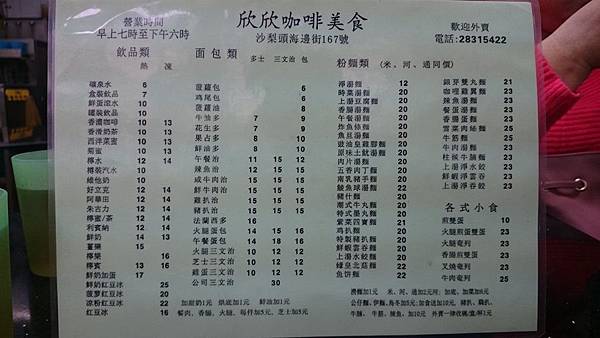 營業時間
早上七時至下午六時
欣欣咖啡美食
沙梨頭海邊街167號
歡迎外賣
電話:28315422
飲品類
熱 凍
礦泉水 6
盒裝飲品 7
鮮蛋滾水 10
罐裝飲品 10
香濃咖啡 10 13
香滑奶茶 10 13
西洋菜蜜 10 13
菊蜜 10 13
檸水 12 14
樽裝汽水 10
維他奶 10
好立克 12 14
阿華田 12 14
朱古力 12 14
檸蜜/茶 12 14
利賓納 12 14
鮮奶 14 13
薑樂 15
檸樂 16
檸賓 13 16
鮮奶加蛋 17
鮮奶紅豆冰 25
菠蘿紅豆冰 20
涼粉紅豆冰 22
紅豆冰 16
面包類 多士 三文治 包
菠蘿包 6
鸡尾包 6
菠蘿油 8
牛油多 7 9
花生多 7 9
果占多 8 10
鮮油多 8 10
午餐治 11 15 15
辣魚治 12 15
咸牛肉治
鮮牛肉治
鸡扒治
豬扒治
法蘭西多 16
火腿蛋包 14 16
午餐蛋包 14 18 16
火腿三文治 10 12
芝士三文治 10 12
雞蛋三文治 10 12
公司三文治 30
加甜奶1元 烘底加1元 鮮油加1元
餐肉, 香腸, 火腿, 每样加5元, 芝士加5元
粉麵類 (米、河、通同價)
淨湯麵 12
時菜湯麵 20
上湯豆腐麵 20
香腸湯麵 20
午餐湯麵 20
炸魚條麵 20
魚旦湯麵 20
豉油皇雞膠麵 20
原味土魷湯麵 20
肉片湯麵 20
五香肉丁麵 20
南乳豬手麵 20
鯪魚球湯麵 22
豬什麵 20
潮式牛丸麵 20
特式墨丸麵 20
紫菜四寶麵 21
鸡扒麵 20
特製豬扒麵 20
鮮蝦雲吞麵 20
蠔皇北菇麵 20
魚饼麵 22
銀芽雙丸麵 21
咖哩雞翼麵 23
辣魚湯麵 23
餐蛋湯麵 23
香腸蛋麵 23
雪菜肉絲麵 25
牛筋麵 25
牛肉湯麵 23
柱候牛腩麵 23
上湯淨水餃 23
鮮蝦淨雲吞 23
上湯淨吞餃 23
各式小食
煎雙蛋 10
火腿煎蛋雙蛋 23
火腿奄列 23
香腸煎雙蛋 23
叉燒奄列 23
牛肉奄列 25
撈麵加1元 米、河、通加2元河; 加底, 加菜加6元
公仔麵,伊麵,烏冬加5元;加食送加10元, 豬扒, 鷄扒,
牛腩, 牛筋, 辣魚, 加10元 外賣一律收碗/盒/杯1元